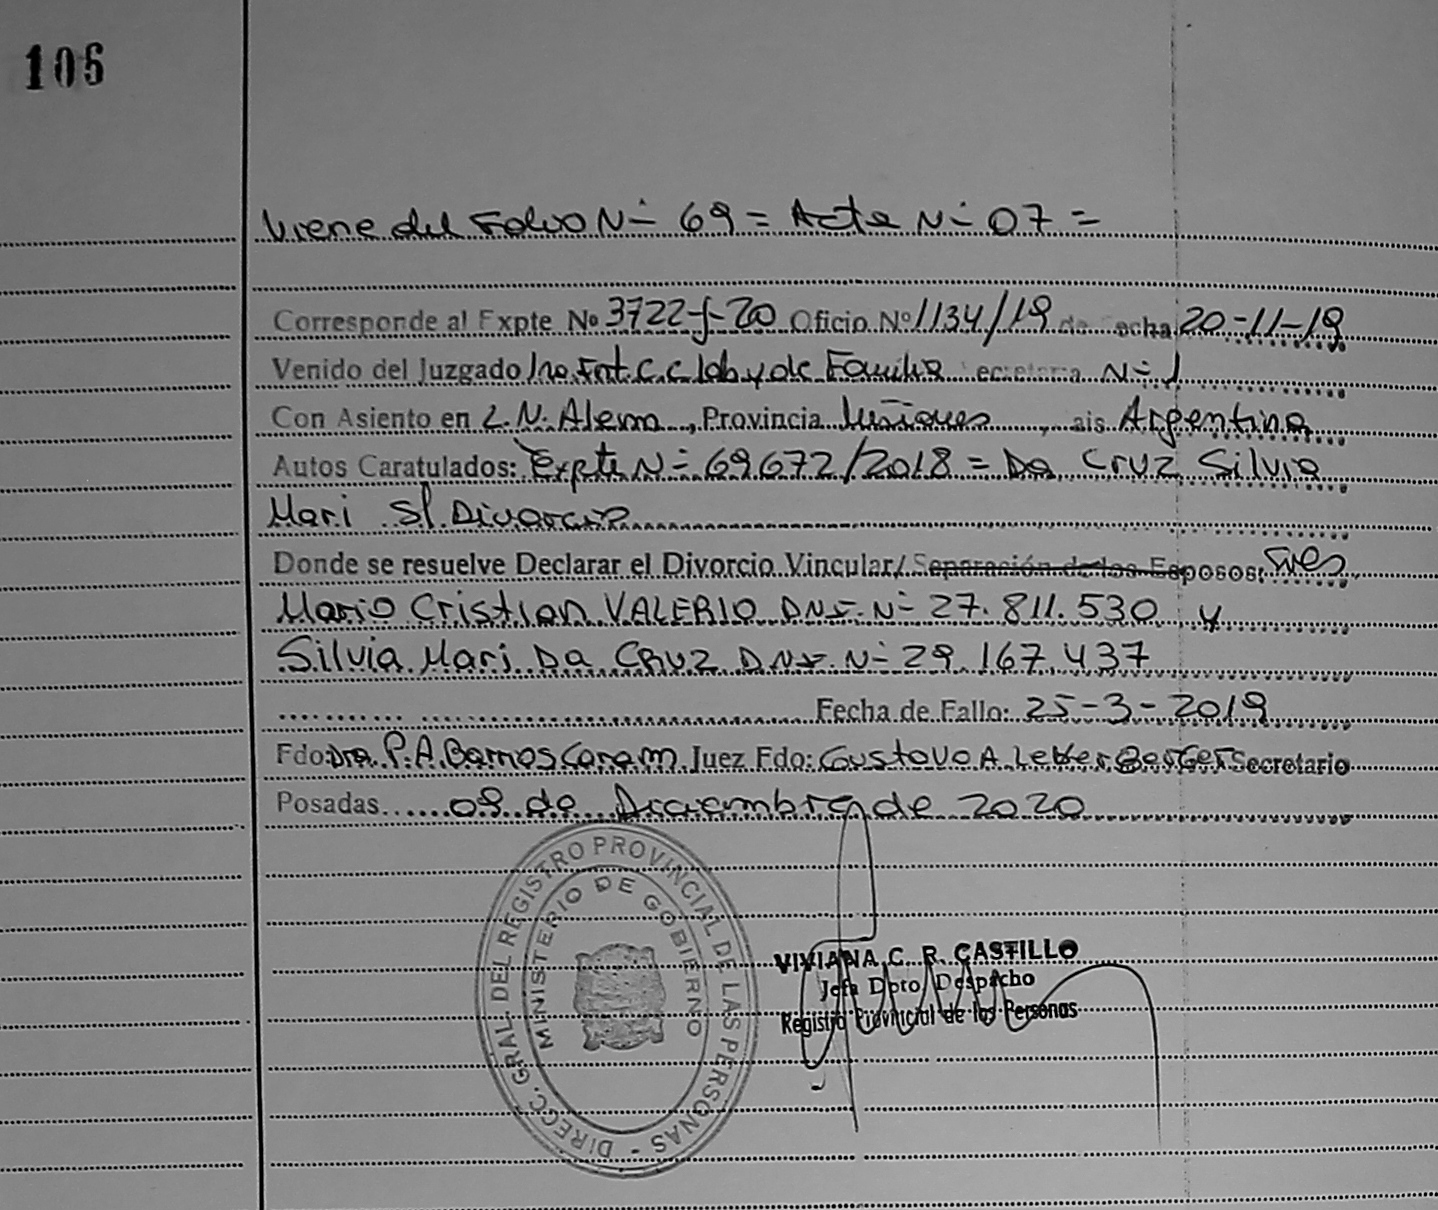 106
Viene del Folio Nº 69 = Acta Nº 07 =
Corresponde al Expte No 3722-f-20 Oficio Nº 1134/19 de echa 20-11-19
Venido del Juzgado 1ro. Int. C.C. lab. y de Familia ecretaria Nº 1
Con Asiento en L.N. Alem, Provincia Misiones, ais Argentina
Autos Caratulados: Expte Nº 69.672/2018 = Da Cruz Silvia
Mari S/. Divorcio
Donde se resuelve Declarar el Divorcio Vincular/Separación de los Esposos: Sres
Mario Cristian VALERIO DNI. Nº 27.811.530 y
Silvia Mari Da CRUZ DNI. Nº 29.167.437
Fecha de Fallo: 25-3-2019
Fdo: Dra. P.A. Barrios Caram Juez Fdo: Gustavo A. Secretario
Posadas 09 de Diciembre de 2020
DIRECC. GRAL. DEL REGISTRO PROVINCIAL DE LAS PERSONAS -
MINISTERIO DE GOBIERNO
VIVIANA C. R. CASTILLO
Jefa Dpto Despacho
Registro Provincial de las Personas